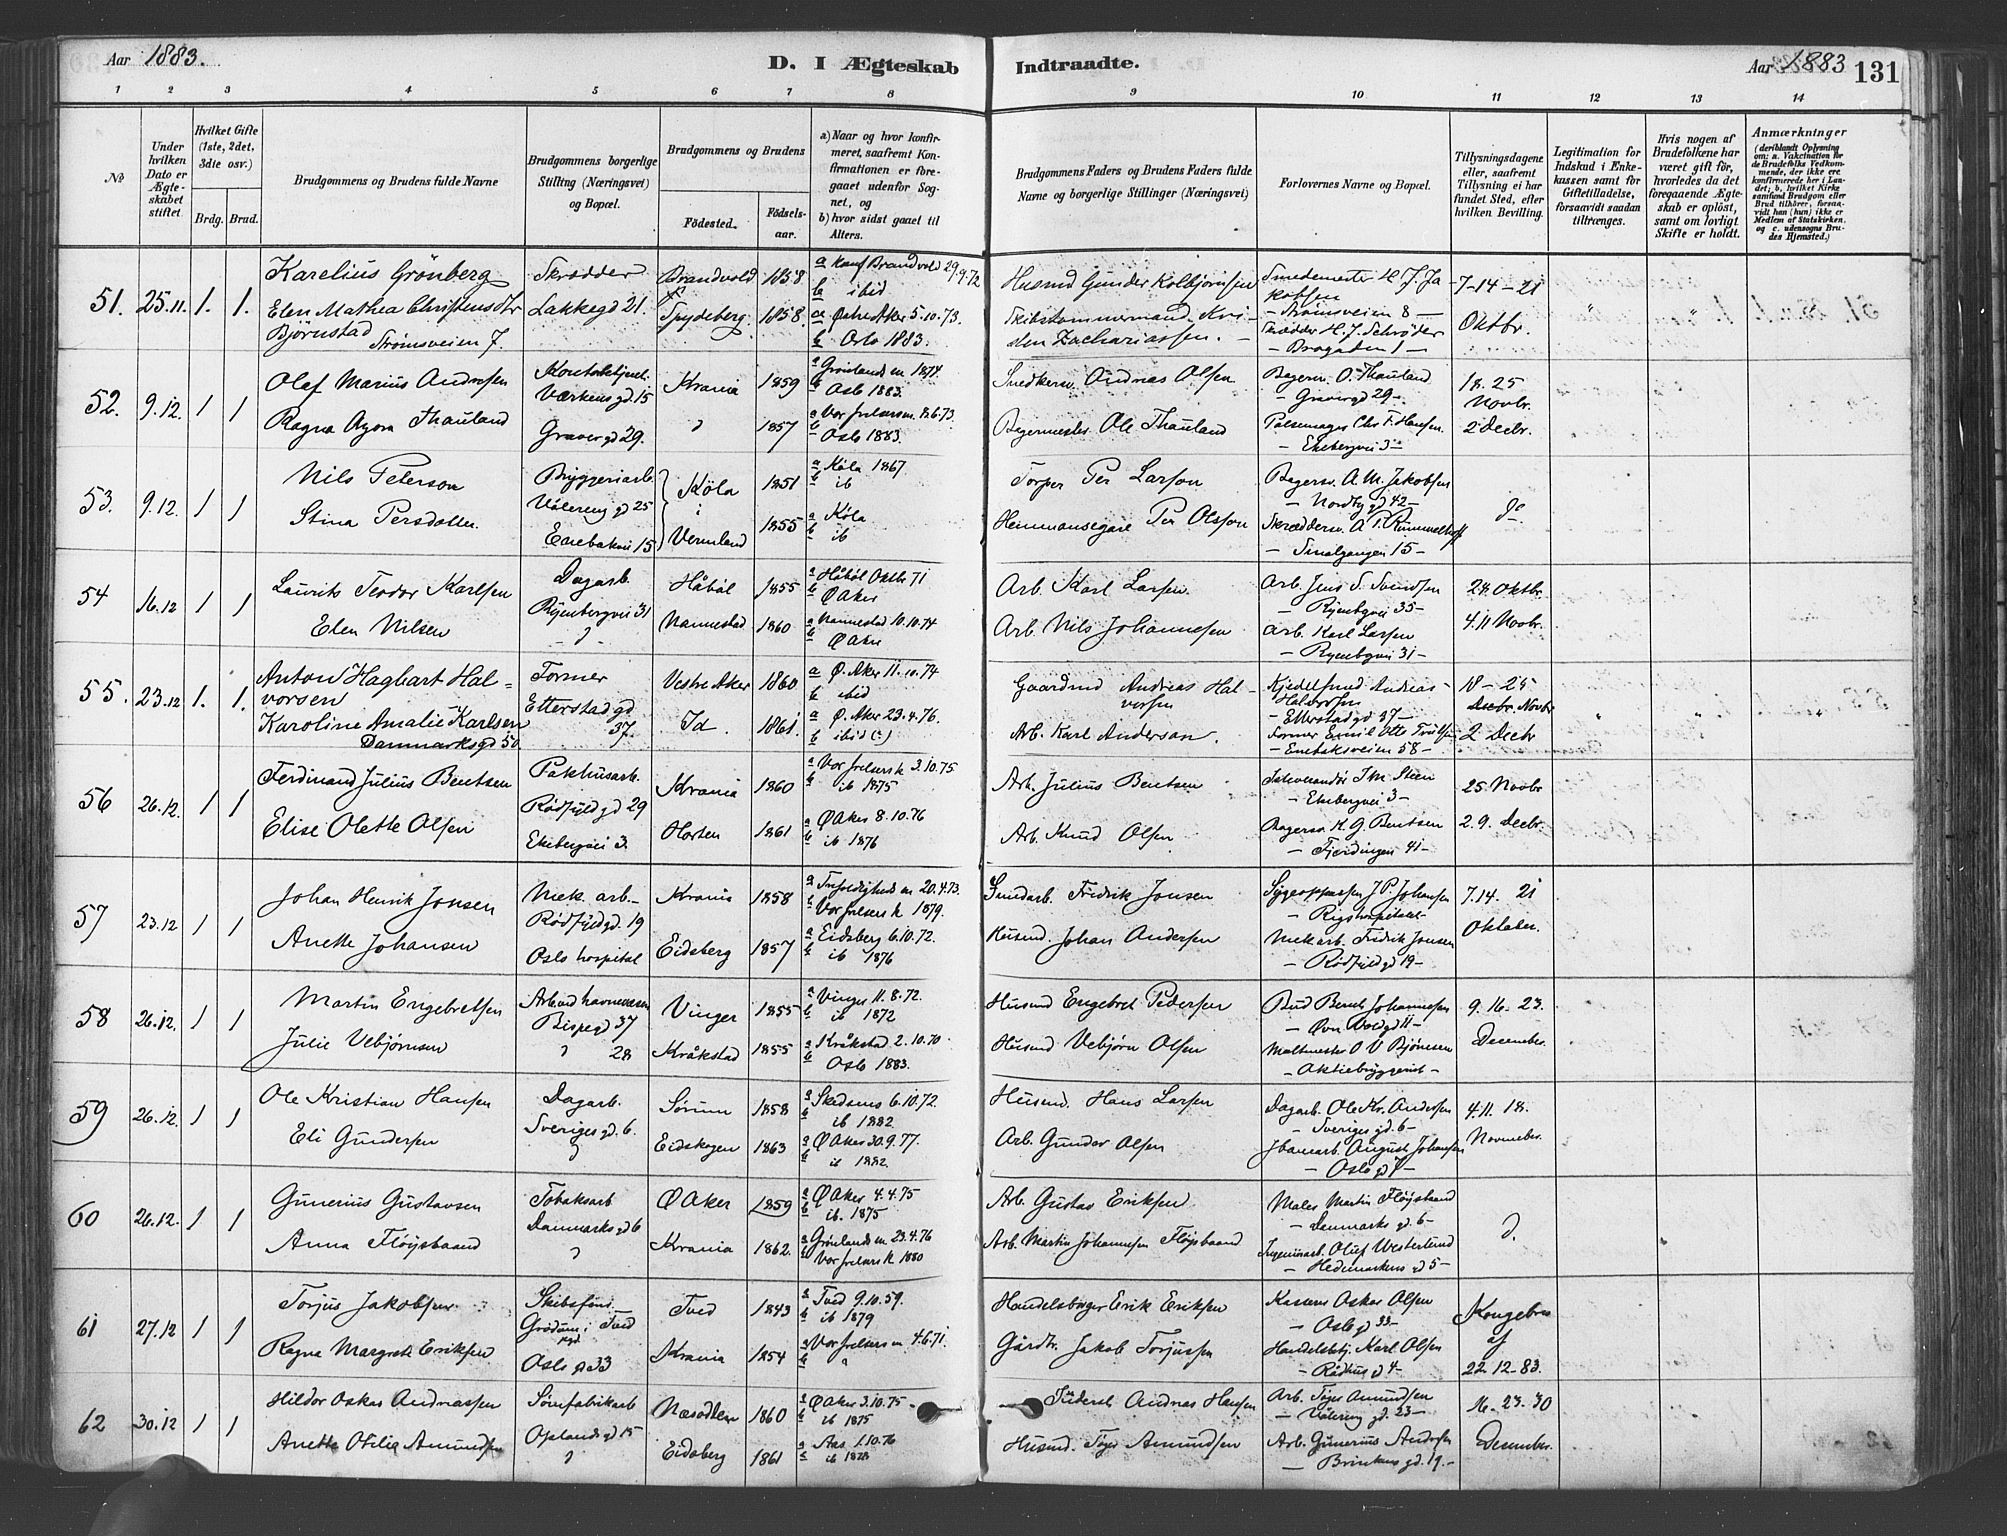 Aar 1883.
D. I Ægteskab Indtraadte.
Aar 1883
131
1 2 3 4 5 6 7 8 9 10 11 12 13 14
No
Under hvilken Dato er Ægteskabet stiftet.
Hvilket Gifte (1ste, 2det, 3die osv.)
Brdg. Brud.
Brudgommens og Brudens fulde Navne
Brudgommens borgerlige Stilling (Næringsvei) og Bopæl.
Brudgommens og Brudens
Fødested. Fødselsaar.
a) Naar og hvor konfirmeret, saafremt Konfirmationen er foregaaet udenfor Sognet, og
b) hvor sidst gaaet til Alters.
Brudgommens Faders og Brudens Faders fulde Navne og borgerlige Stillinger (Næringsvei)
Forlovernes Navne og Bopæl.
Tillysningsdagene eller, saafremt Tillysning ei har fundet Sted, efter hvilken Bevilling.
Legitimation for Indskud i Enkekassen samt for Giftetilladelse, forsaavidt saadan tiltrænges.
Hvis nogen af Brudefolkene har været gift før, hvorledes da det foregaaende Ægteskab er opløst, samt om lovligt Skifte er holdt.
Anmærkninger
(deriblandt Oplysning om: a. Vakcination for de Brudefolks Vedkommende, der ikke ere konfirmerede her i Landet; b. hvilket Kirkesamfund Brudgom eller Brud tilhører, forsaavidt han (hun) ikke er Medlem af Statskirken, og c. udensogns Brudes Hjemsted.)
51. 25.11. 1. 1. Karelius Grönberg Skrædder Brandvold 1858 a konf Brandvold 29.9.72 b ibid Husmd Gunder Kolbjørnsen Smedemester H. J. Jakobsen - Strømsveien 8 - 7-14-21
Elen Mathea Christensdtr Bjørnstad Strømsveien 7. Lakkegd 21. Spydeberg. 1858. a Østre Aker 5.10.73. b Oslo 1883. Skibstømmermand Zachariassen. Skrædder H. J. Schrøder - Brogaden 1 - Oktbr.
52. 9.12. 1 1 Olaf Marius Andresen Værkensgd 15 Krania 1859 a Grønlands m 1874 b Oslo 1883. Snedkersv. Andreas Olsen Bagersv. O. Thauland - Gravergd 29 - 18. 25 Novbr.
Ragna Thauland Gravergd 29. 1857 a Vor frelsers m. 8.6.73 b Oslo 1883. Bagermester Ole Thauland Pølsemager Chr F. Hansen. - Ekebergvei 3 - 2 Decbr.
53. 9.12. 1 1 Nils Peterson Bryggeriarb. Vålereng gd 25 Köla i 1851 a Köla 1867. b ib Torper Per Larson Bagersv. A. M. Jakobsen - Nordbygd 42 - do
Stina Persdotter. Enebakvei 15 Vermland 1855 a Köla b ib Hemmansegare Per Olsson Skræddersv. A. P. Rummelhoff - Smalgangen 15 -
54 16.12 1 1 Laurits Teodor Karlsen Dagarb. Ryenbergvei 31 Håbøl 1855 a Håbøl Oktbr 71 b Ø Aker Arb. Karl Larsen. Arb. Jens S. Svendsen - Ryenbgvei 35 - 28. Oktbr.
Elen Nilsen Nannestad 1860 a Nannestad 10.10.74 b Ø Aker Arb. Nils Johannesen Arb. Karl Larsen - Ryenbgvei 31 - 4.11 Novbr.
55. 23.12 1. 1. Anton Hagbart Halvorsen Former Etterstadgd 37. Vestre Aker 1860 a Ø. Aker 11.10.74 b ibid Gaardmd Andreas Halvorsen Kjedelsmed Andreas Halvorsen - Etterstadgd 37 - 18 - 25 Novbr
Karoline Amalie Karlsen Danmarksgd 50 Id. 1861. a Ø. Aker 23.4.76. b ibid (-) Arb. Karl Anderson. Former Emil Otto - Enebaksveien 58 - 2 Decbr
56 26.12. 1 1 Ferdinand Julius Bentsen Pakhusarb. Rødfyldgd 29 Krania 1860 a Vor frelsers k 3.10.75 b ib 1875 Arb. Julius Bentsen J M Steen - Ekebergvei 3 - 25 Novbr
Elise Olette Olsen Ekebergvei 3. Horten 1861 a Ø Aker 8.10.76 b ib 1876 Arb. Knud Olsen Bagersv. K. G. Bentsen - Fjerdingen 41 - 2.9. Decbr.
57 23.12 1 1 Johan Henrik Jonsen Mek. arb. - Rødfyldgd. 19 Krania 1858 a Trefoldigheds m 20.4.73. b Vor frelsers k 1879. Fredrik Jonsen Sygeopasser J P. Johansen - Rigshospitalet - 7.14. 21
Anette Johansen Oslo hospital Eidsberg 1857 a Eidsberg 6.10.72. b ib 1876 Husmd. Johan Andersen Mek arb. Fredrik Jonsen - Rødfyldgd 19 - Oktober.
58 26.12. 1 1 Martin Engebretsen Arb ved havnevæsen Bispegd 37 Vinger 1855 a Vinger 11.8.72. b ib 1872 Husmd Engebret Pedersen Bud Bernt Johannesen - Øvre Voldgd 11 - 9. 16. 23.
Julie Vebjørnsen 28 Kråkstad 1855 a Kråkstad 2.10.70 b Oslo 1883. Husmd Vebjørn Olsen Maltmester O V Bjørnsen - Aktiebryggeriet - December
59 26.12. 1 1 Ole Kristian Hansen Dagarb. Sveriges gd. 6. Sørum 1858 a Skedsmo 6.10.72. b ib 1882 Husmd. Hans Larsen Dagarb. Ole Kr. Andersen - Sveriges gd. 6 - 4.11. 18.
Eli Gundersen Eidskogen 1863 a Ø Aker 30.9.77. b ib 1882. Arb. Gunder Olsen August Johansen - Oslo gd 7 - November.
60 26.12. 1 1 Gunerius Gustavsen Tobaksarb Danmarks gd 6 Ø Aker 1859 a Ø Aker 4.4.75 b ib. 1875 Arb. Gustav Eriksen Maler Martin Fløjsbaand - Danmarks gd. 6 -
Anna Fløjsbaand Krania 1862. a Grønlands m. 23.4.76 b Vor frelsers k 1880 Arb. Martin Johannesen Fløjsbaand Oluf Westerlund - Hedemarkens gd 5 -
61 27.12 1 1 Torjus Jakobsen Skibsfører Tved 1843 a Tved 9.10.59. b ib 1879 Handelsborger Erik Eriksen Kasserer Oskar Olsen - Oslo gd 33 - Kongebrev af
Ragna Margrete Eriksen Oslo gd 33 Krania 1854 a Vor frelsers m 4.6.71. b Gårdbr. Jakob Torjussen Handelsbetj. Karl Olsen - Rådhusgd 4 - 22.12.83.
62 30.12 1 1 Hildor Oskar Andreassen Næsodden 1860 a Ø Aker 3.10.75 b ib 1875 Andreas Hansen Arb. Amundsen - Vålereng gd. 23 - 16. 23. 30
Anette Otilie Amundsen Oplandsgd 15 Eidsberg 1861 a Aas 1.10.76 b ib 1878 Husmd. Amundsen Arb. Gunerius Andersen - Brinkens gd. 19. - December.